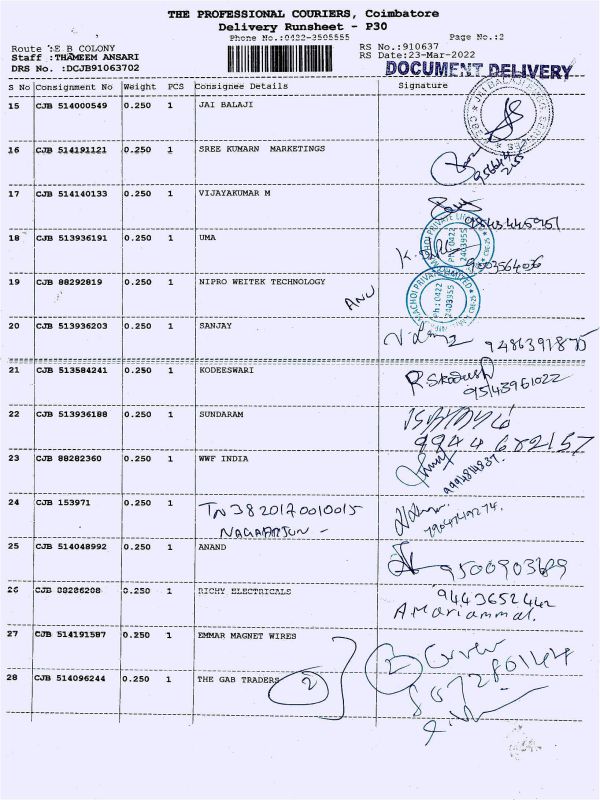 THE PROFESSIONAL COURIERS, Coimbatore
Delivery Runsheet - P30
Phone No.:0422-3505555
Page No.:2
Route :E B COLONY
RS No.:910637
Staff :THAMEEM ANSARI
RS Date:23-Mar-2022
DRS No. :DCJB91063702
DOCUMENT DELIVERY
S No Consignment No Weight PCS Consignee Details Signature
15 CJB 514000549 0.250 1 JAI BALAJI
16 CJB 514191121 0.250 1 SREE KUMARN MARKETINGS
17 CJB 514140133 0.250 1 VIJAYAKUMAR M
18 CJB 513936191 0.250 1 UMA
9003564036
19 CJB 88292819 0.250 1 NIPRO WEITEK TECHNOLOGY
ANU
Ph : 0422
2403955
20 CJB 513936203 0.250 1 SANJAY
9486391875
21 CJB 513584241 0.250 1 KODEESWARI
95143961022
22 CJB 513936188 0.250 1 SUNDARAM
9944682157
23 CJB 88282360 0.250 1 WWF INDIA
24 CJB 153971 0.250 1 TN38 20170010015
NAGAARJUN -
25 CJB 514048992 0.250 1 ANAND
26 CJB 88286208 0.250 1 RICHY ELECTRICALS
9443652442
A Mariammal.
27 CJB 514191587 0.250 1 EMMAR MAGNET WIRES
2
28 CJB 514096244 0.250 1 THE GAB TRADERS 2